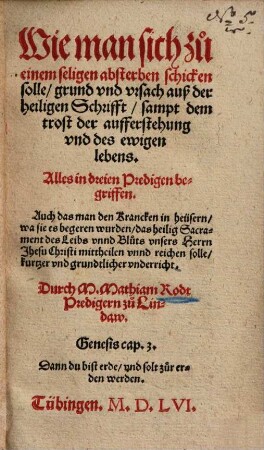 Wie man sich zů
einem seligen absterben schicken
solle / grund vnd vrsach auß der
heiligen Schrifft / sampt dem
trost der aufferstehung
vnd des ewigen
lebens.
Alles in dreien Predigen be-
griffen.
Auch das man den Krancken in heüsern /
wa sie es begeren wurden / das heilig Sacra-
ment des Leibs vnnd Blůts vnsers Herrn
Jhesu Christi mittheilen vnnd reichen solle /
kurtzer vnd grundtlicher vnderricht.
Durch M. Mathiam Rodt
Predigern zů Lin-
daw.
Genesis cap. 3.
Dann du bist erde / vnd solt zůr er-
den werden.
Tübingen. M. D. LVI.